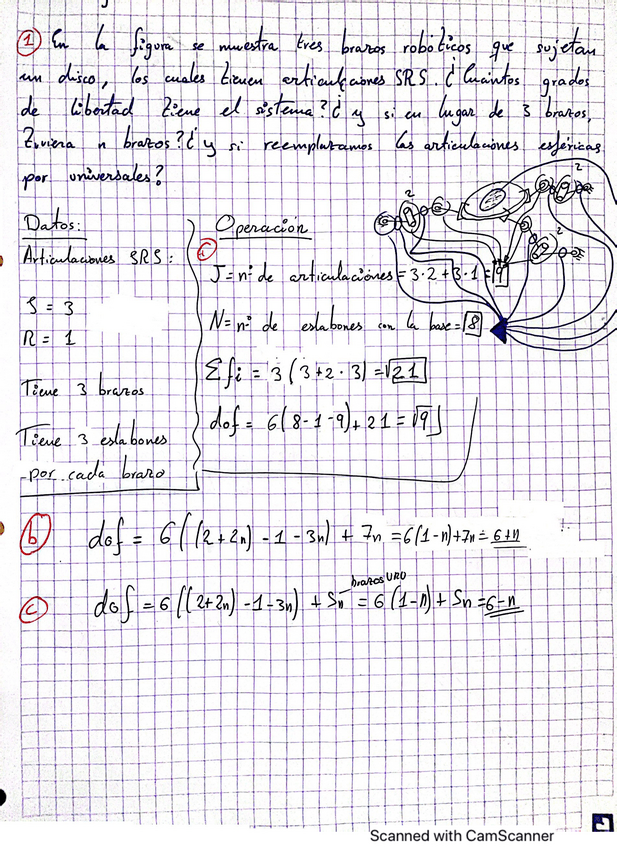 ① En la figura se muestra tres brazos robóticos que sujetan
un disco, los cuales tienen articulaciones SRS. ¿Cuántos grados
de libertad tiene el sistema? ¿y si en lugar de 3 brazos,
tuviera n brazos? ¿y si reemplazamos las articulaciones esféricas
por universales?
2
2
2
Datos:
Articulaciones SRS:
S = 3
R = 1
Tiene 3 brazos
Tiene 3 eslabones
por cada brazo
Operación
J = nº de articulaciones = 3·2 + 3·1 = 9
N = nº de eslabones con la base = 8
Σfi = 3(3+2·3) = 21
dof = 6(8-1-9) + 21 = 9
b) dof = 6((2+2n) - 1 - 3n) + 7n = 6(1-n)+7n = 6+n
brazos URU
c) dof = 6((2+2n) -1-3n) + 5n = 6(1-n) + 5n = 6-n
Scanned with CamScanner